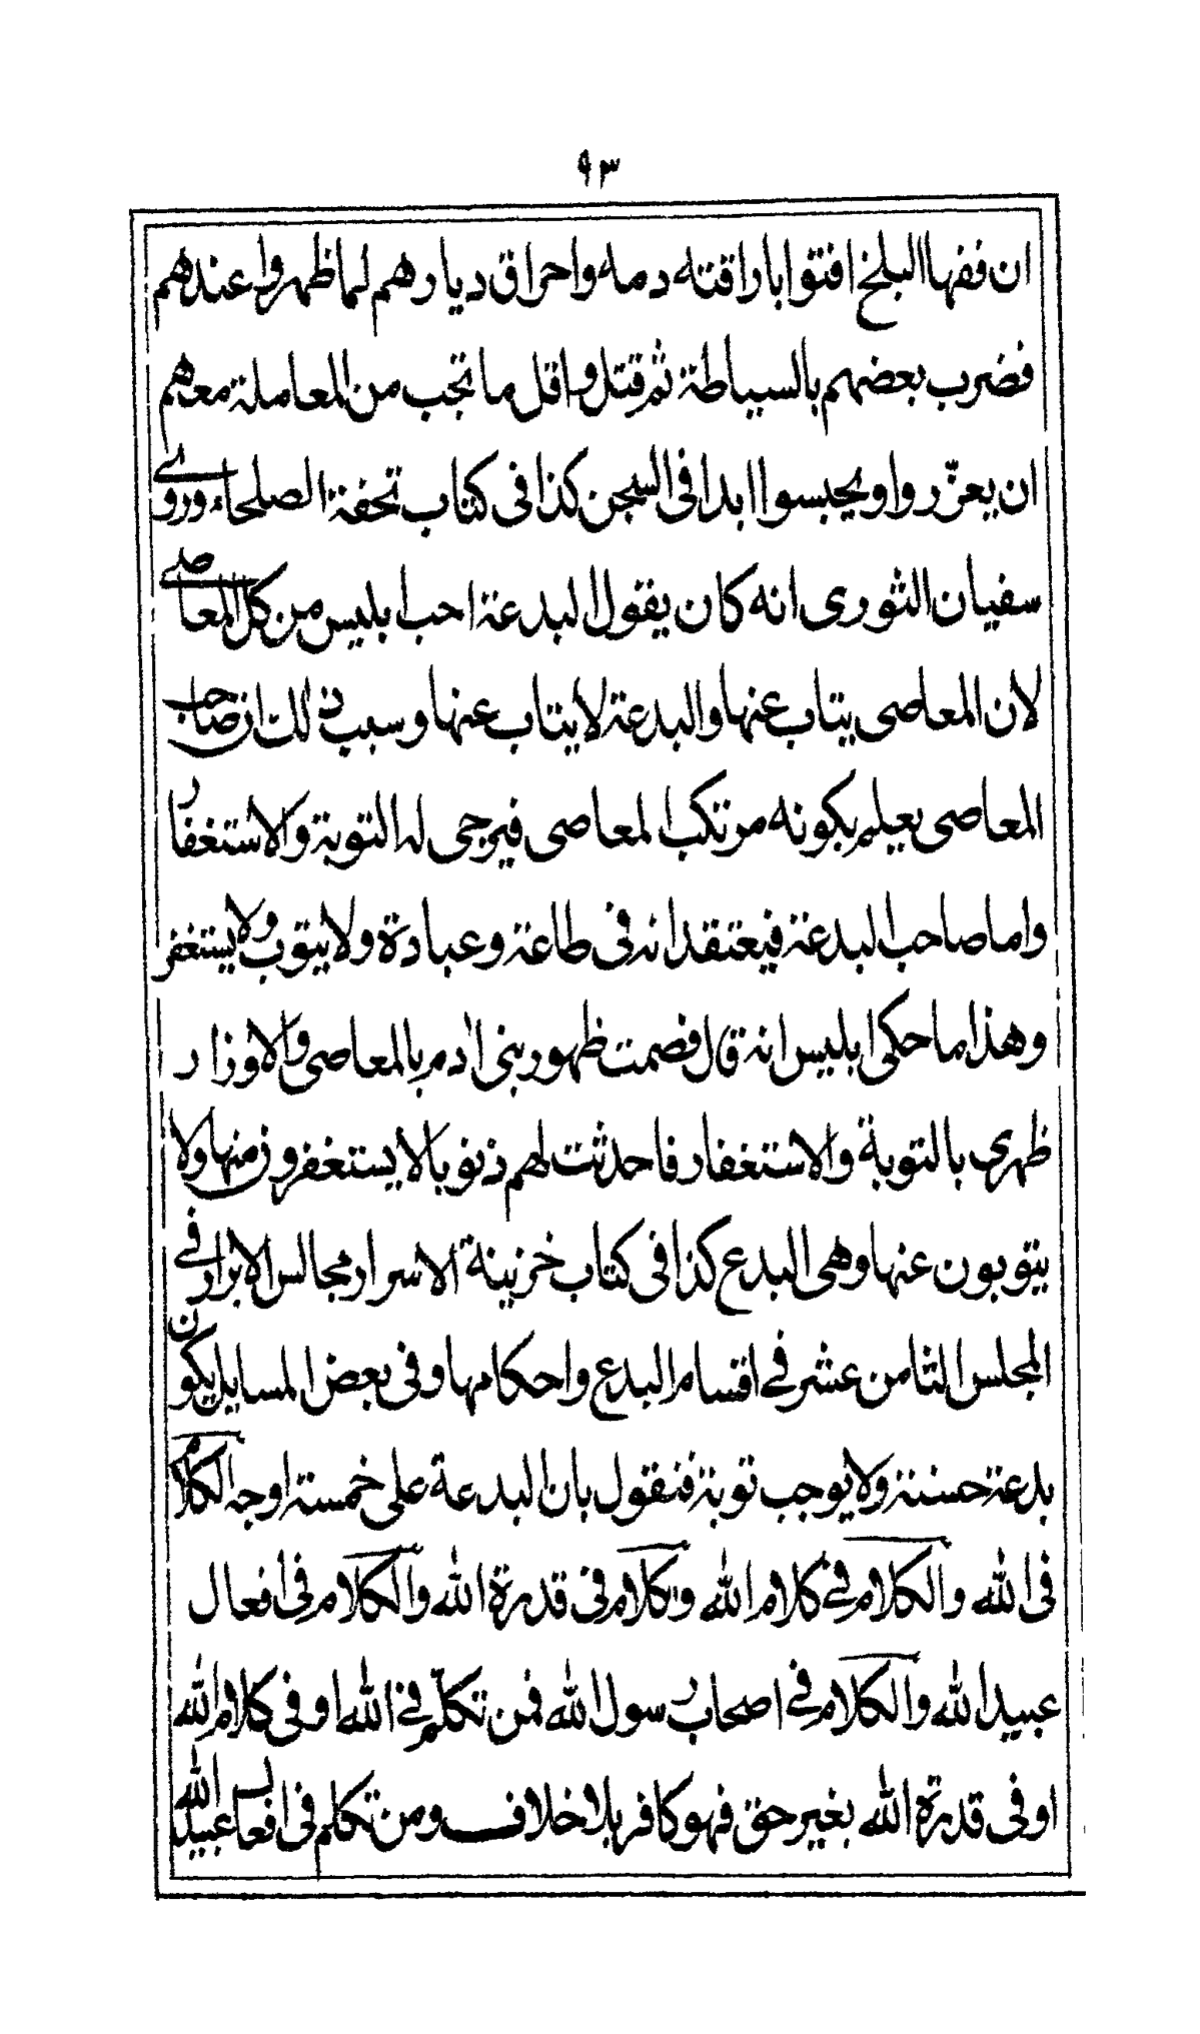 ٩٣
ان فقها البلخ افتوا باراقته دمه واحراق ديارهم لما ظهروا عندهم
فضرب بعضهم بالسياطة ثم قتل واقل ما تجب من المعاملة معهم
ان يعزّروا او يحبسوا ابدا فى السجن كذا فى كتاب تحفة الصلحاء وروى
سفيان الثورى انه كان يقول البدعة احب ابليس من كل المعاصى
لان المعاصى يتاب عنها والبدعة لا يتاب عنها وسبب ذلك ان صاحب
المعاصى يعلم بكونه مرتكب المعاصى فيرجى له التوبة والاستغفار
واما صاحب البدعة فيعتقد انه فى طاعة وعبادة ولا يتوب ولا يستغفر
وهذا ما حكى ابليس انه قال قصمت ظهور بنى اٰدم بالمعاصى والاوزار
ظهرى بالتوبة والاستغفار فاحدثت لهم ذنوبا لا يستغفرون منها ولا
يتوبون عنها وهى البدع كذا فى كتاب خزينة الاسرار مجالس الابرار فى
المجلس الثامن عشر فى اقسام البدع واحكامها وفى بعض المسايل يكون
بدعة حسنة ولا يوجب توبة فنقول بان البدعة على خمسة اوجه الكلام
فى الله والكلام فى كلام الله وكلام فى قدرة الله والكلام فى افعال
عبيد الله والكلام فى اصحاب رسول الله فمن تكلّم فى الله او فى كلام الله
او فى قدرة الله بغير حق فهو كافر بلا خلاف ومن تكلم فى افعال عبيد الله